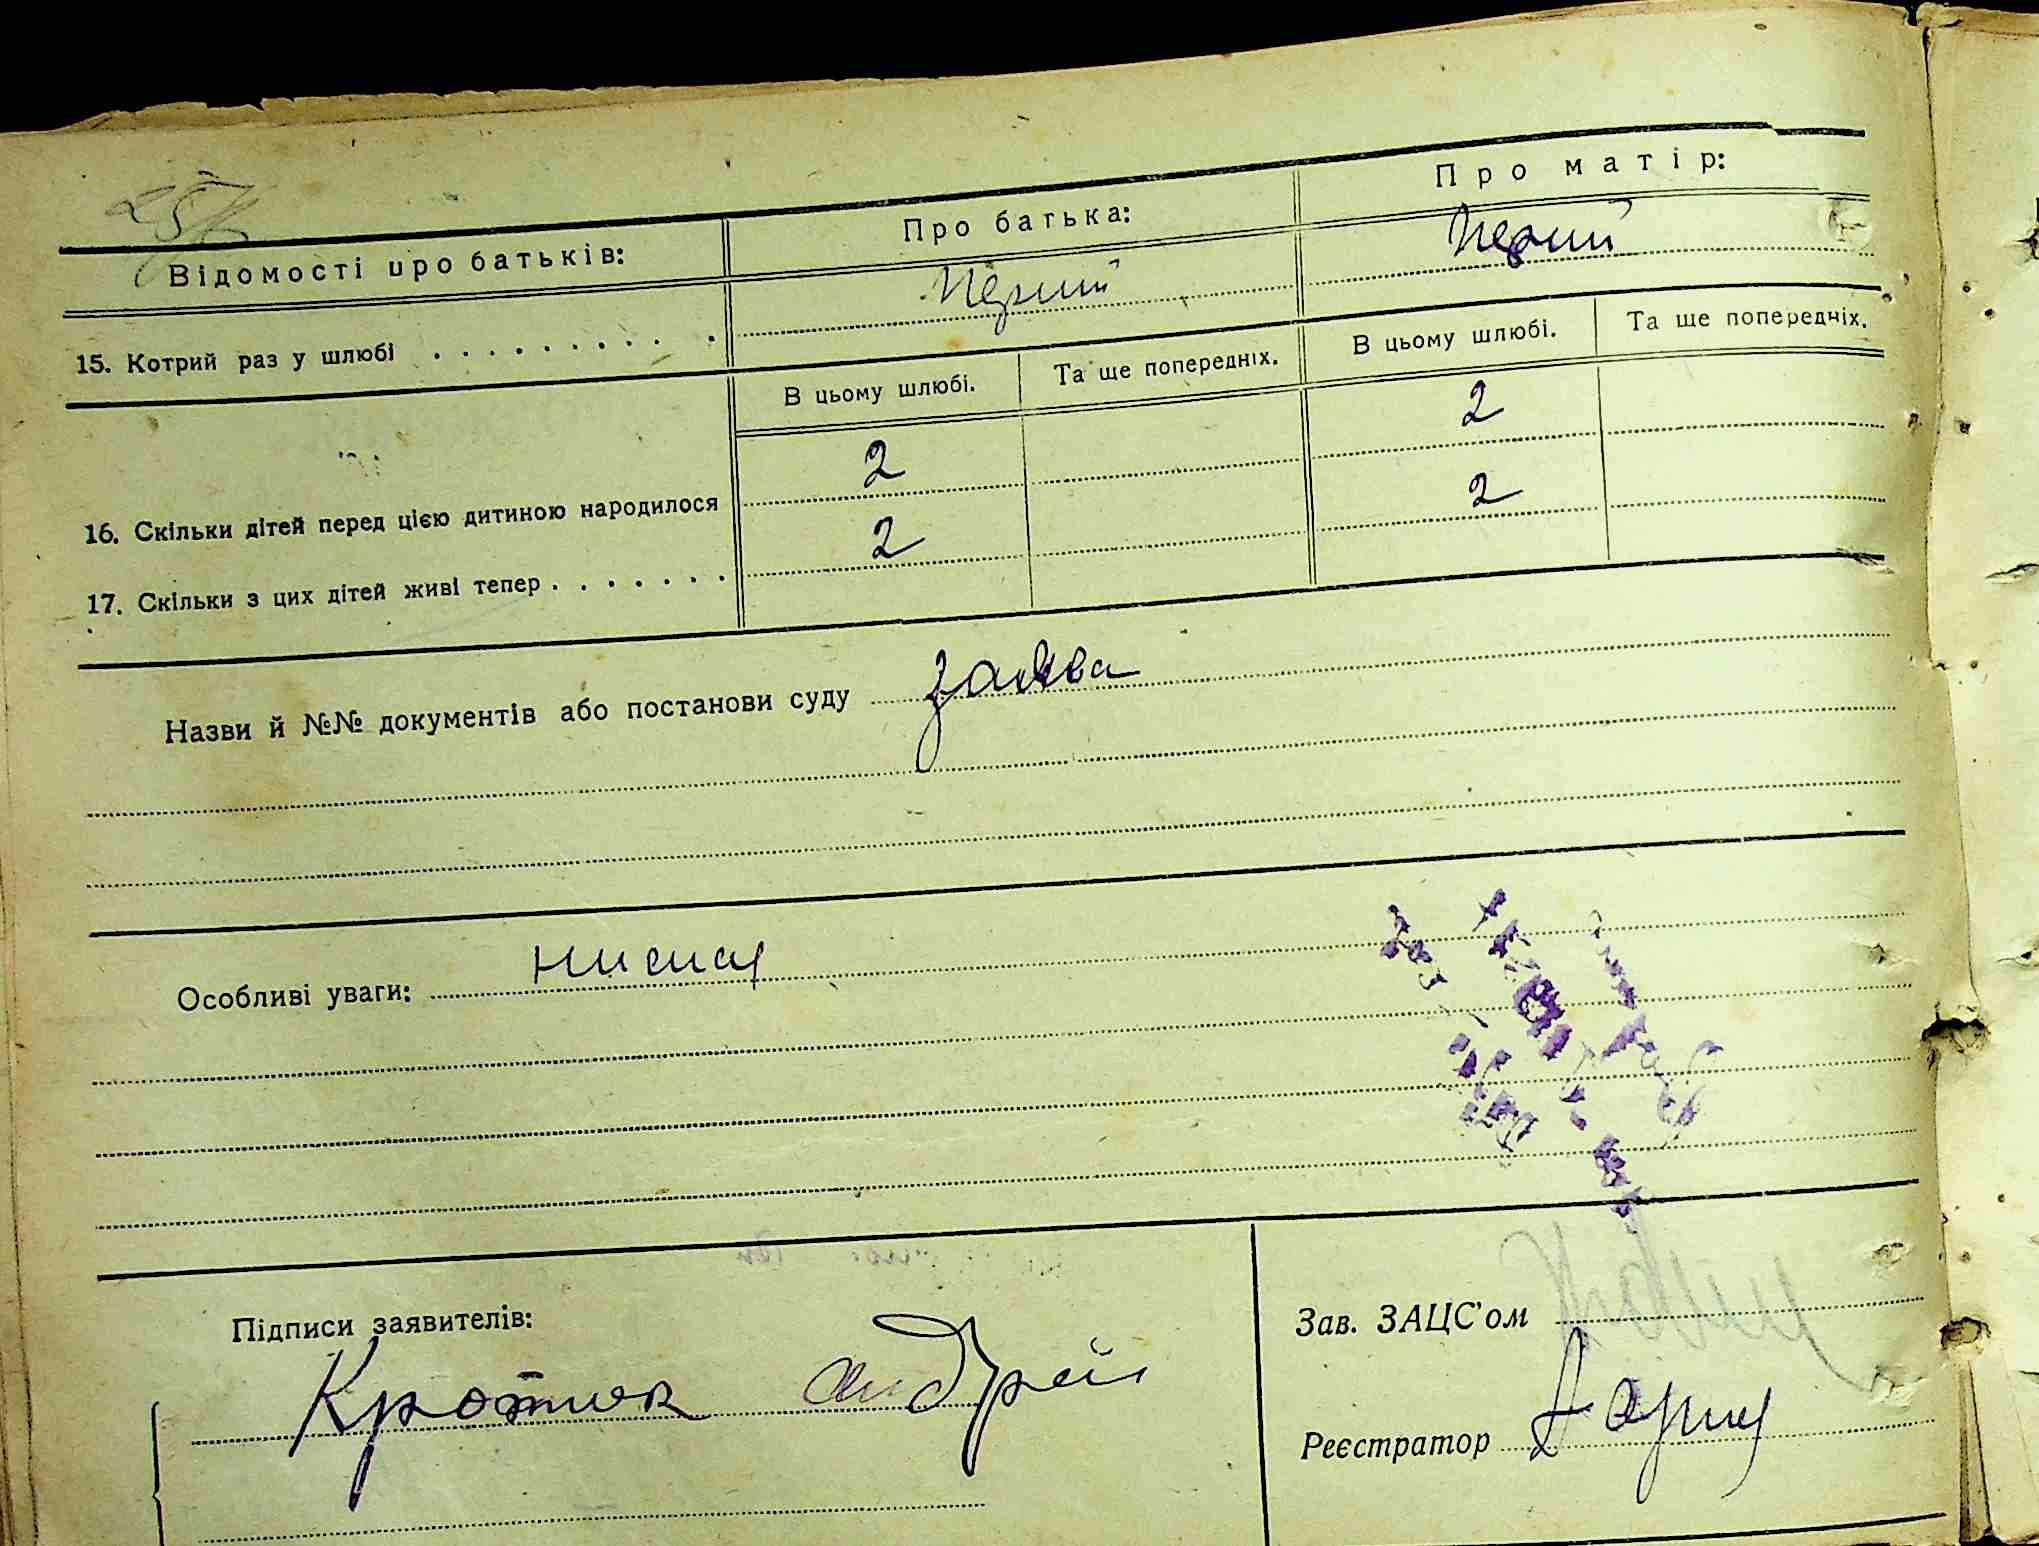 Відомості про батьків: Про батька: Про матір:
15. Котрий раз у шлюбі . . . . . . . . . . Перший Перший
В цьому шлюбі. Та ще попередніх. В цьому шлюбі. Та ще попередніх.
16. Скільки дітей перед цією дитиною народилося 2 2
17. Скільки з цих дітей живі тепер . . . . . . . 2 2
Назви й №№ документів або постанови суду заява
Особливі уваги:
Підписи заявителів:
Андрей
Зав. ЗАЦС'ом
Реєстратор